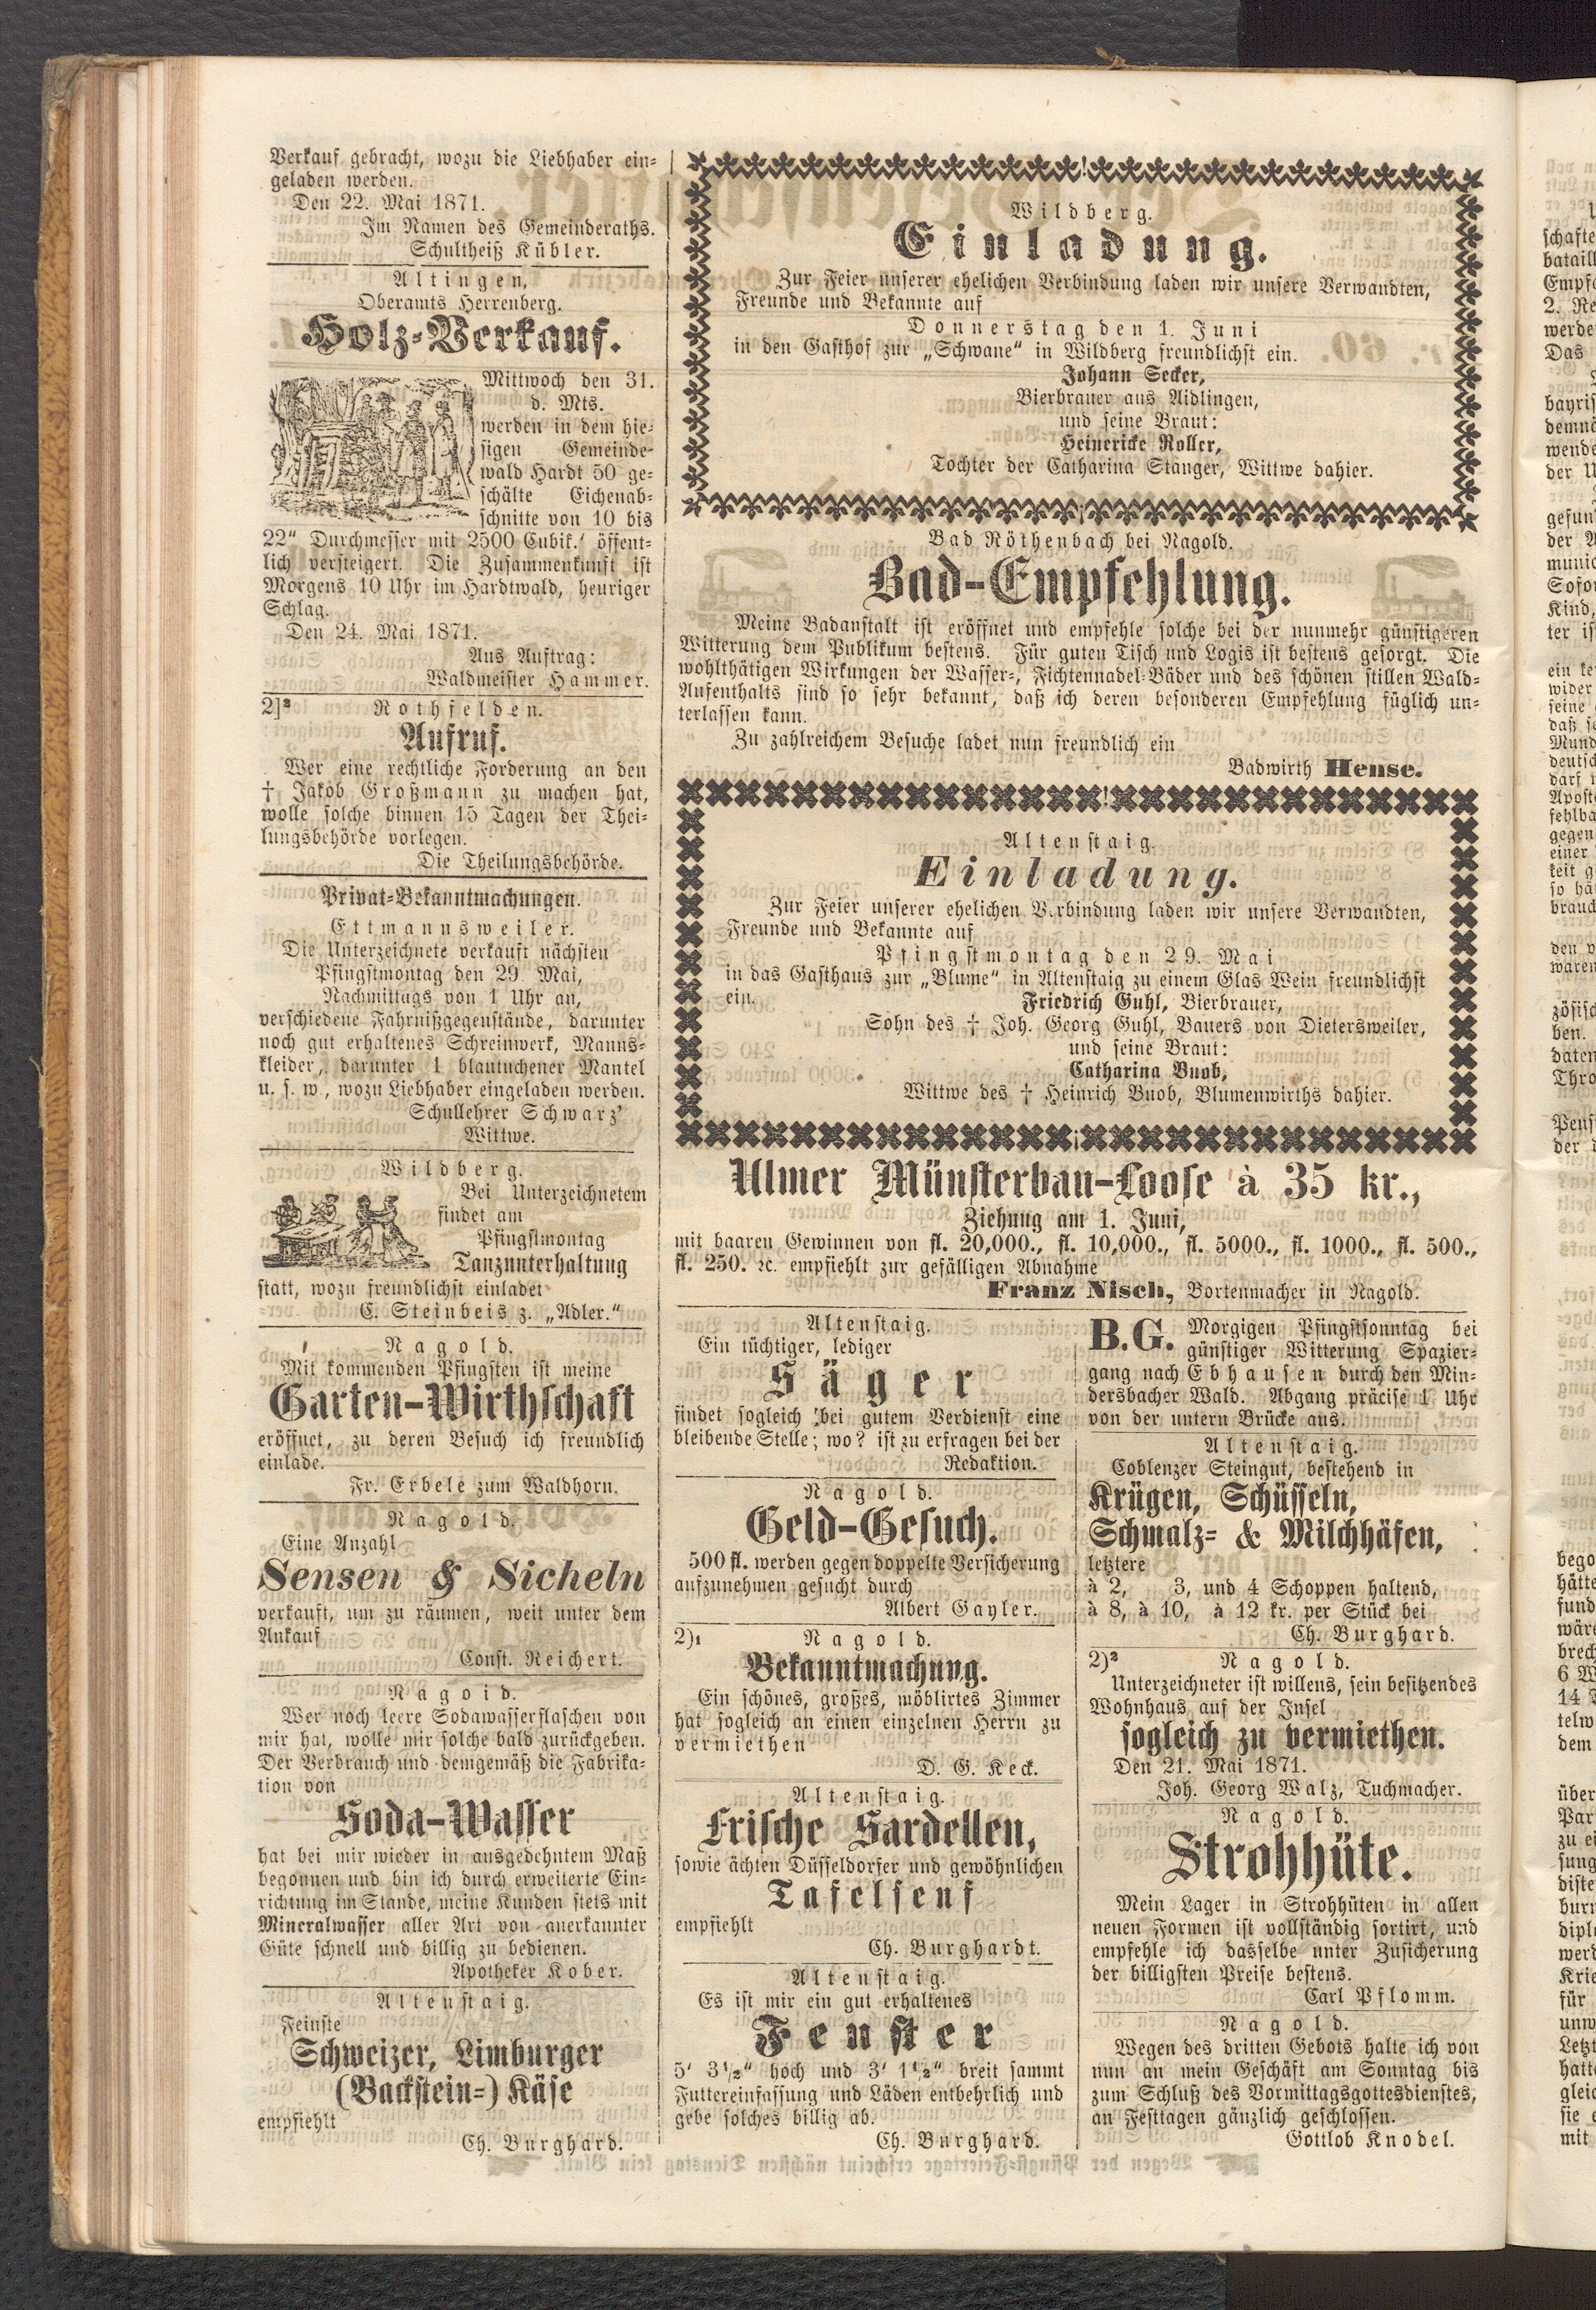 Verkauf gebracht, wozu die Liebhaber ein-
geladen werden.
Den 22. Mai 1871.
Im Namen des Gemeinderaths.
Schultheiß Kübler.
Altingen,
Oberamts Herrenberg.
Holz-Verkauf.
Mittwoch den 31.
d. Mts.
werden in dem hie-
sigen Gemeinde-
wald Hardt 50 ge-
schälte Eichenab-
schnitte von 10 bis
22" Durchmesser mit 2500 Cubik.' öffent-
lich versteigert. Die Zusammenkunft ist
Morgens 10 Uhr im Hardtwald, heuriger
Schlag.
Den 24. Mai 1871.
Aus Auftrag:
Waldmeister Hammer.
2]² Rothfelden.
Aufruf.
Wer eine rechtliche Forderung an den
† Jakob Großmann zu machen hat,
wolle solche binnen 15 Tagen der Thei-
lungsbehörde vorlegen.
Die Theilungsbehörde.
Privat-Bekanntmachungen.
Ettmannsweiler.
Die Unterzeichnete verkauft nächsten
Pfingstmontag den 29. Mai,
Nachmittags von 1 Uhr an,
verschiedene Fahrnißgegenstände, darunter
noch gut erhaltenes Schreinwerk, Manns-
kleider, darunter 1 blautuchener Mantel
u. s. w., wozu Liebhaber eingeladen werden.
Schullehrer Schwarz'
Wittwe.
Wildberg.
Bei Unterzeichnetem
findet am
Pfingstmontag
Tanzunterhaltung
statt, wozu freundlichst einladet
C. Steinbeis z. „Adler."
Nagold.
Mit kommenden Pfingsten ist meine
Garten-Wirthschaft
eröffnet, zu deren Besuch ich freundlich
einlade.
Fr. Erbele zum Waldhorn.
Nagold.
Eine Anzahl
Sensen & Sicheln
verkauft, um zu räumen, weit unter dem
Ankauf
Const. Reichert.
Nagold.
Wer noch leere Sodawasserflaschen von
mir hat, wolle mir solche bald zurückgeben.
Der Verbrauch und demgemäß die Fabrika-
tion von
Soda-Wasser
hat bei mir wieder in ausgedehntem Maß
begonnen und bin ich durch erweiterte Ein-
richtung im Stande, meine Kunden stets mit
Mineralwasser aller Art von anerkannter
Güte schnell und billig zu bedienen.
Apotheker Kober.
Altenstaig.
Feinste
Schweizer, Limburger
(Backstein-) Käse
empfiehlt
Ch. Burghard.
Wildberg.
Einladung.
Zur Feier unserer ehelichen Verbindung laden wir unsere Verwandten,
Freunde und Bekannte auf
Donnerstag den 1. Juni
in den Gasthof zur „Schwane" in Wildberg freundlichst ein.
Johann Secker,
Bierbrauer aus Aidlingen,
und seine Braut:
Heinericke Roller,
Tochter der Catharina Stanger, Wittwe dahier.
Bad Röthenbach bei Nagold.
Bad-Empfehlung.
Meine Badanstalt ist eröffnet und empfehle solche bei der nunmehr günstigeren
Witterung dem Publikum bestens. Für guten Tisch und Logis ist bestens gesorgt. Die
wohlthätigen Wirkungen der Wasser-, Fichtennadel-Bäder und des schönen stillen Wald-
Aufenthalts sind so sehr bekannt, daß ich deren besonderen Empfehlung füglich un-
terlassen kann.
Zu zahlreichem Besuche ladet nun freundlich ein
Badwirth Hense.
Altenstaig.
Einladung.
Zur Feier unserer ehelichen Verbindung laden wir unsere Verwandten,
Freunde und Bekannte auf
Pfingstmontag den 29. Mai
in das Gasthaus zur „Blume" in Altenstaig zu einem Glas Wein freundlichst
ein. Friedrich Guhl, Bierbrauer,
Sohn des † Joh. Georg Guhl, Bauers von Dietersweiler,
und seine Braut:
Catharina Buob,
Wittwe des † Heinrich Buob, Blumenwirths dahier.
Ulmer Münsterbau-Loose à 35 kr.,
Ziehung am 1. Juni,
mit baaren Gewinnen von fl. 20,000., fl. 10,000., fl. 5000., fl. 1000., fl. 500.,
fl. 250. ꝛc. empfiehlt zur gefälligen Abnahme
Franz Nisch, Bortenmacher in Nagold.
Altenstaig.
Ein tüchtiger, lediger
Säger
findet sogleich bei gutem Verdienst eine
bleibende Stelle; wo? ist zu erfragen bei der
Redaktion.
Nagold.
Geld-Gesuch.
500 fl. werden gegen doppelte Versicherung
aufzunehmen gesucht durch
Albert Gayler.
2)1 Nagold.
Bekanntmachung.
Ein schönes, großes, möblirtes Zimmer
hat sogleich an einen einzelnen Herrn zu
vermiethen
D. G. Keck.
Altenstaig.
Frische Sardellen,
sowie ächten Düsseldorfer und gewöhnlichen
Tafelsenf
empfiehlt
Ch. Burghardt.
Altenstaig.
Es ist mir ein gut erhaltenes
Fenster
5' 3½" hoch und 3' 1½" breit sammt
Futtereinfassung und Läden entbehrlich und
gebe solches billig ab.
Ch. Burghard.
B.G. Morgigen Pfingstsonntag bei
günstiger Witterung Spazier-
gang nach Ebhausen durch den Min-
dersbacher Wald. Abgang präcise 1 Uhr
von der untern Brücke aus.
Altenstaig.
Coblenzer Steingut, bestehend in
Krügen, Schüsseln,
Schmalz- & Milchhäfen,
letztere
à 2, 3, und 4 Schoppen haltend,
à 8, à 10, à 12 kr. per Stück bei
Ch. Burghard.
2)² Nagold.
Unterzeichneter ist willens, sein besitzendes
Wohnhaus auf der Insel
sogleich zu vermiethen.
Den 21. Mai 1871.
Joh. Georg Walz, Tuchmacher.
Nagold.
Strohhüte.
Mein Lager in Strohhüten in allen
neuen Formen ist vollständig sortirt, und
empfehle ich dasselbe unter Zusicherung
der billigsten Preise bestens.
Carl Pflomm.
Nagold.
Wegen des dritten Gebots halte ich von
nun an mein Geschäft am Sonntag bis
zum Schluß des Vormittagsgottesdienstes,
an Festtagen gänzlich geschlossen.
Gottlob Knodel.